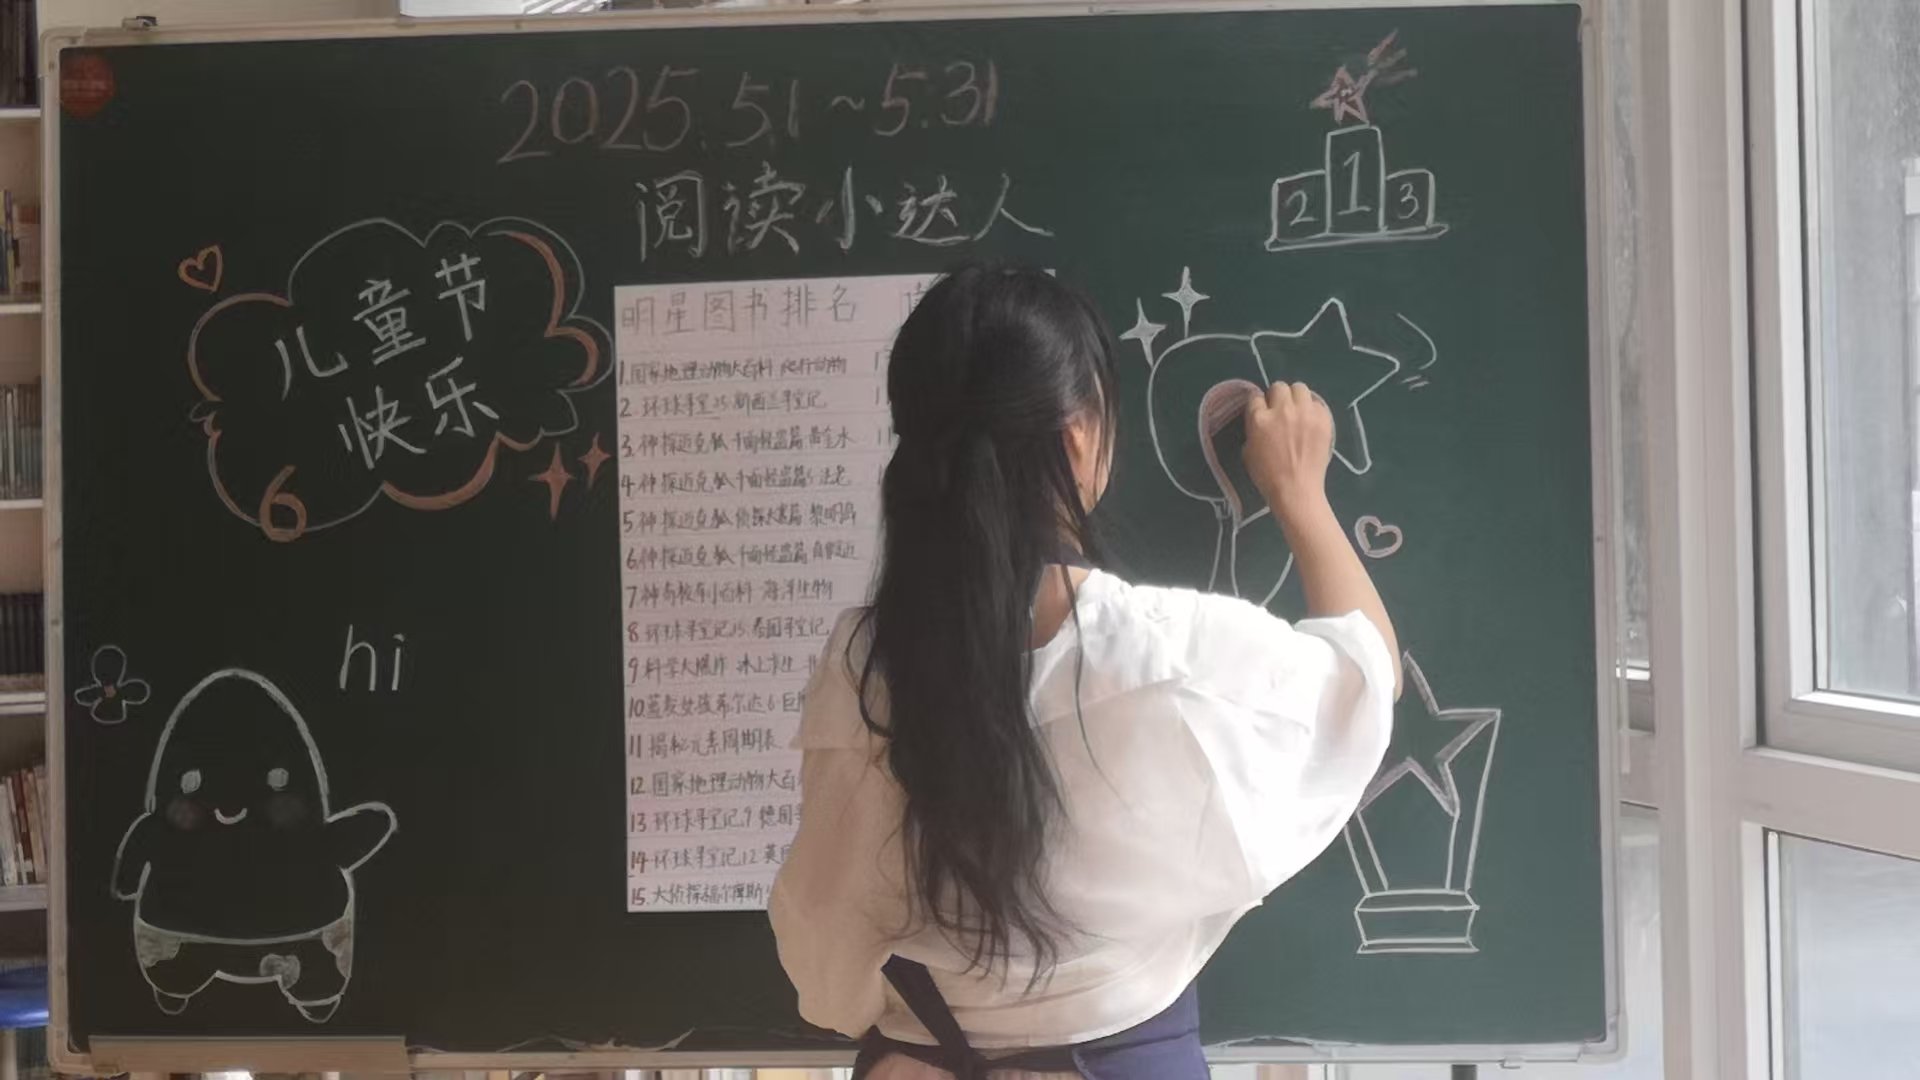 2025.5.1~5.31
阅读小达人
2 1 3
儿童节
快乐
6
hi
明星图书排名
1.国家地理动物大百科 爬行动物
2.环球寻宝记5:新西兰寻宝记
3.神探迈克狐 千面怪盗篇 黄金水
4.神探迈克狐 千面怪盗篇 法老
5 神探迈克狐 侦探大赛篇 黎明岛
6.神探迈克狐 千面怪盗篇
7 神奇校车小百科 海洋生物
8 环球寻宝记15:泰国寻宝记
9 科学大爆炸 冰上
10 蓝发女孩希尔达6
11 揭秘元素周期表
12.国家地理动物大百
13 环球寻宝记9 德国
14 环球寻宝记12 英国
15.大侦探福尔摩斯